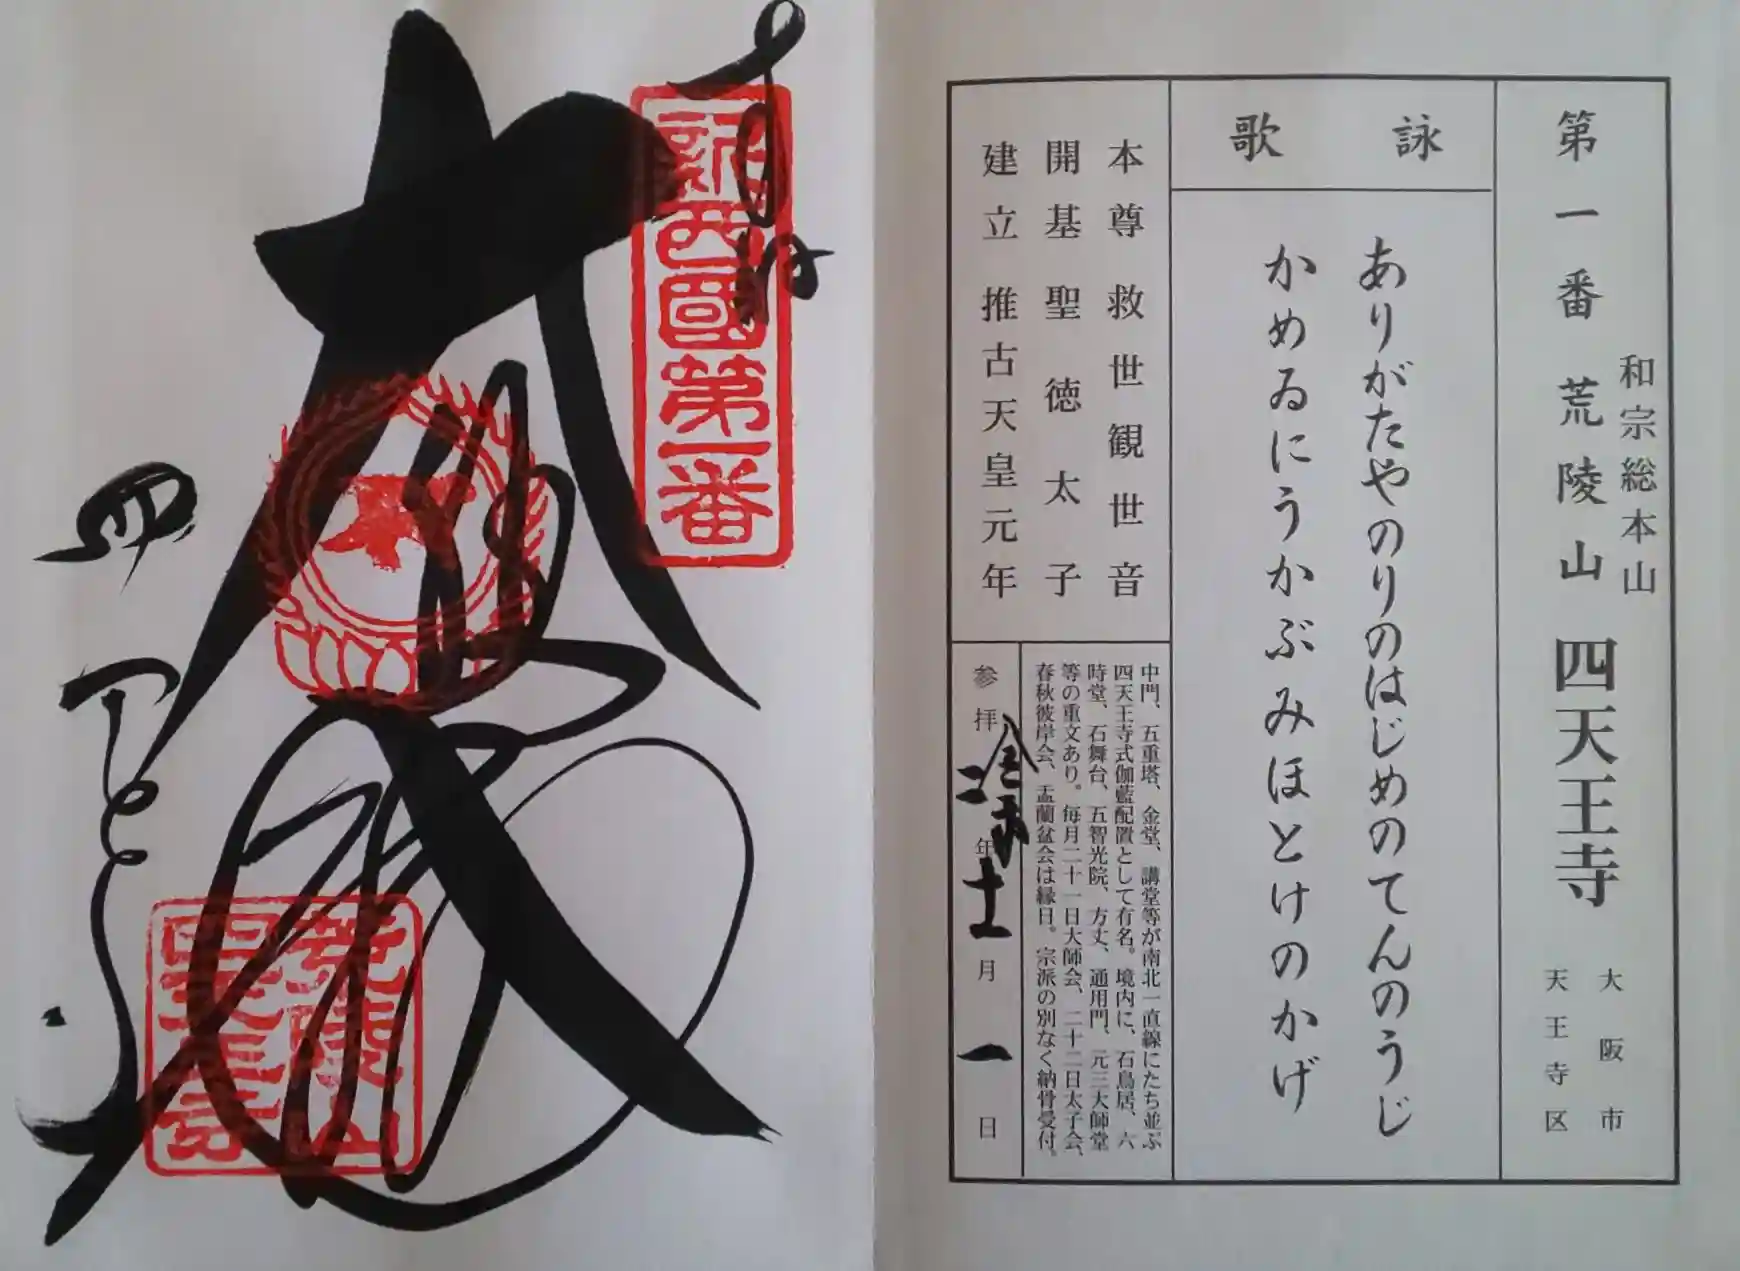 和宗総本山
第一番 荒陵山 四天王寺
大阪市
天王寺区
詠歌
ありがたやのりのはじめのてんのうじ
かめゐにうかぶみほとけのかげ
本尊 救世観世音
開基 聖徳太子
建立 推古天皇元年
中門、五重塔、金堂、講堂等が南北一直線にたち並ぶ
四天王寺式伽藍配置として有名。境内に、石鳥居、六
時堂、石舞台、五智光院、方丈、通用門、元三大師堂
等の重文あり。毎月二十一日大師会、二十二日太子会、
春秋彼岸会、盂蘭盆会は縁日。宗派の別なく納骨受付。
参拝 令和二年十一月一日
新西國第一番
荒陵山
四天王寺